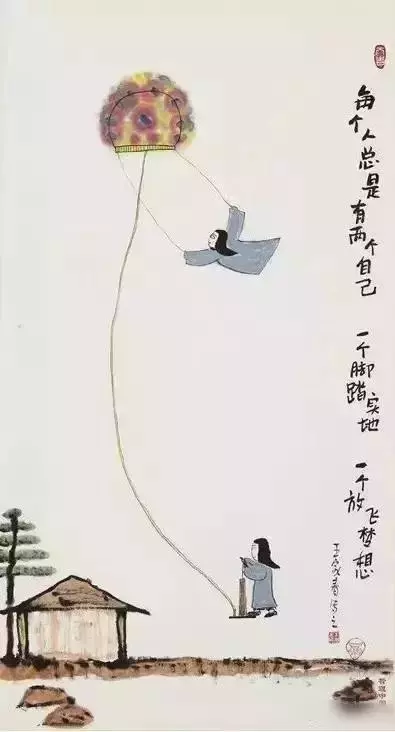 每个人总是有两个自己 一个脚踏实地 一个放飞梦想